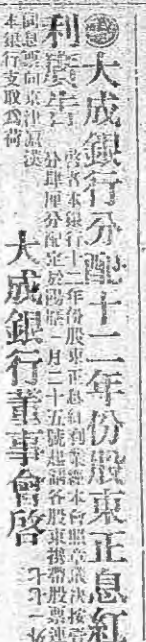 大成銀行分配十二年份股東正息紅
利廣告
啓者本銀行十二年份股東正息紅利業經本會照章議決按
分肆厘分配定於陽歷一月二十五號起請各股東攜帶股票連
同息票向京津滬漢
本銀行支取爲荷
大成銀行董事會啓